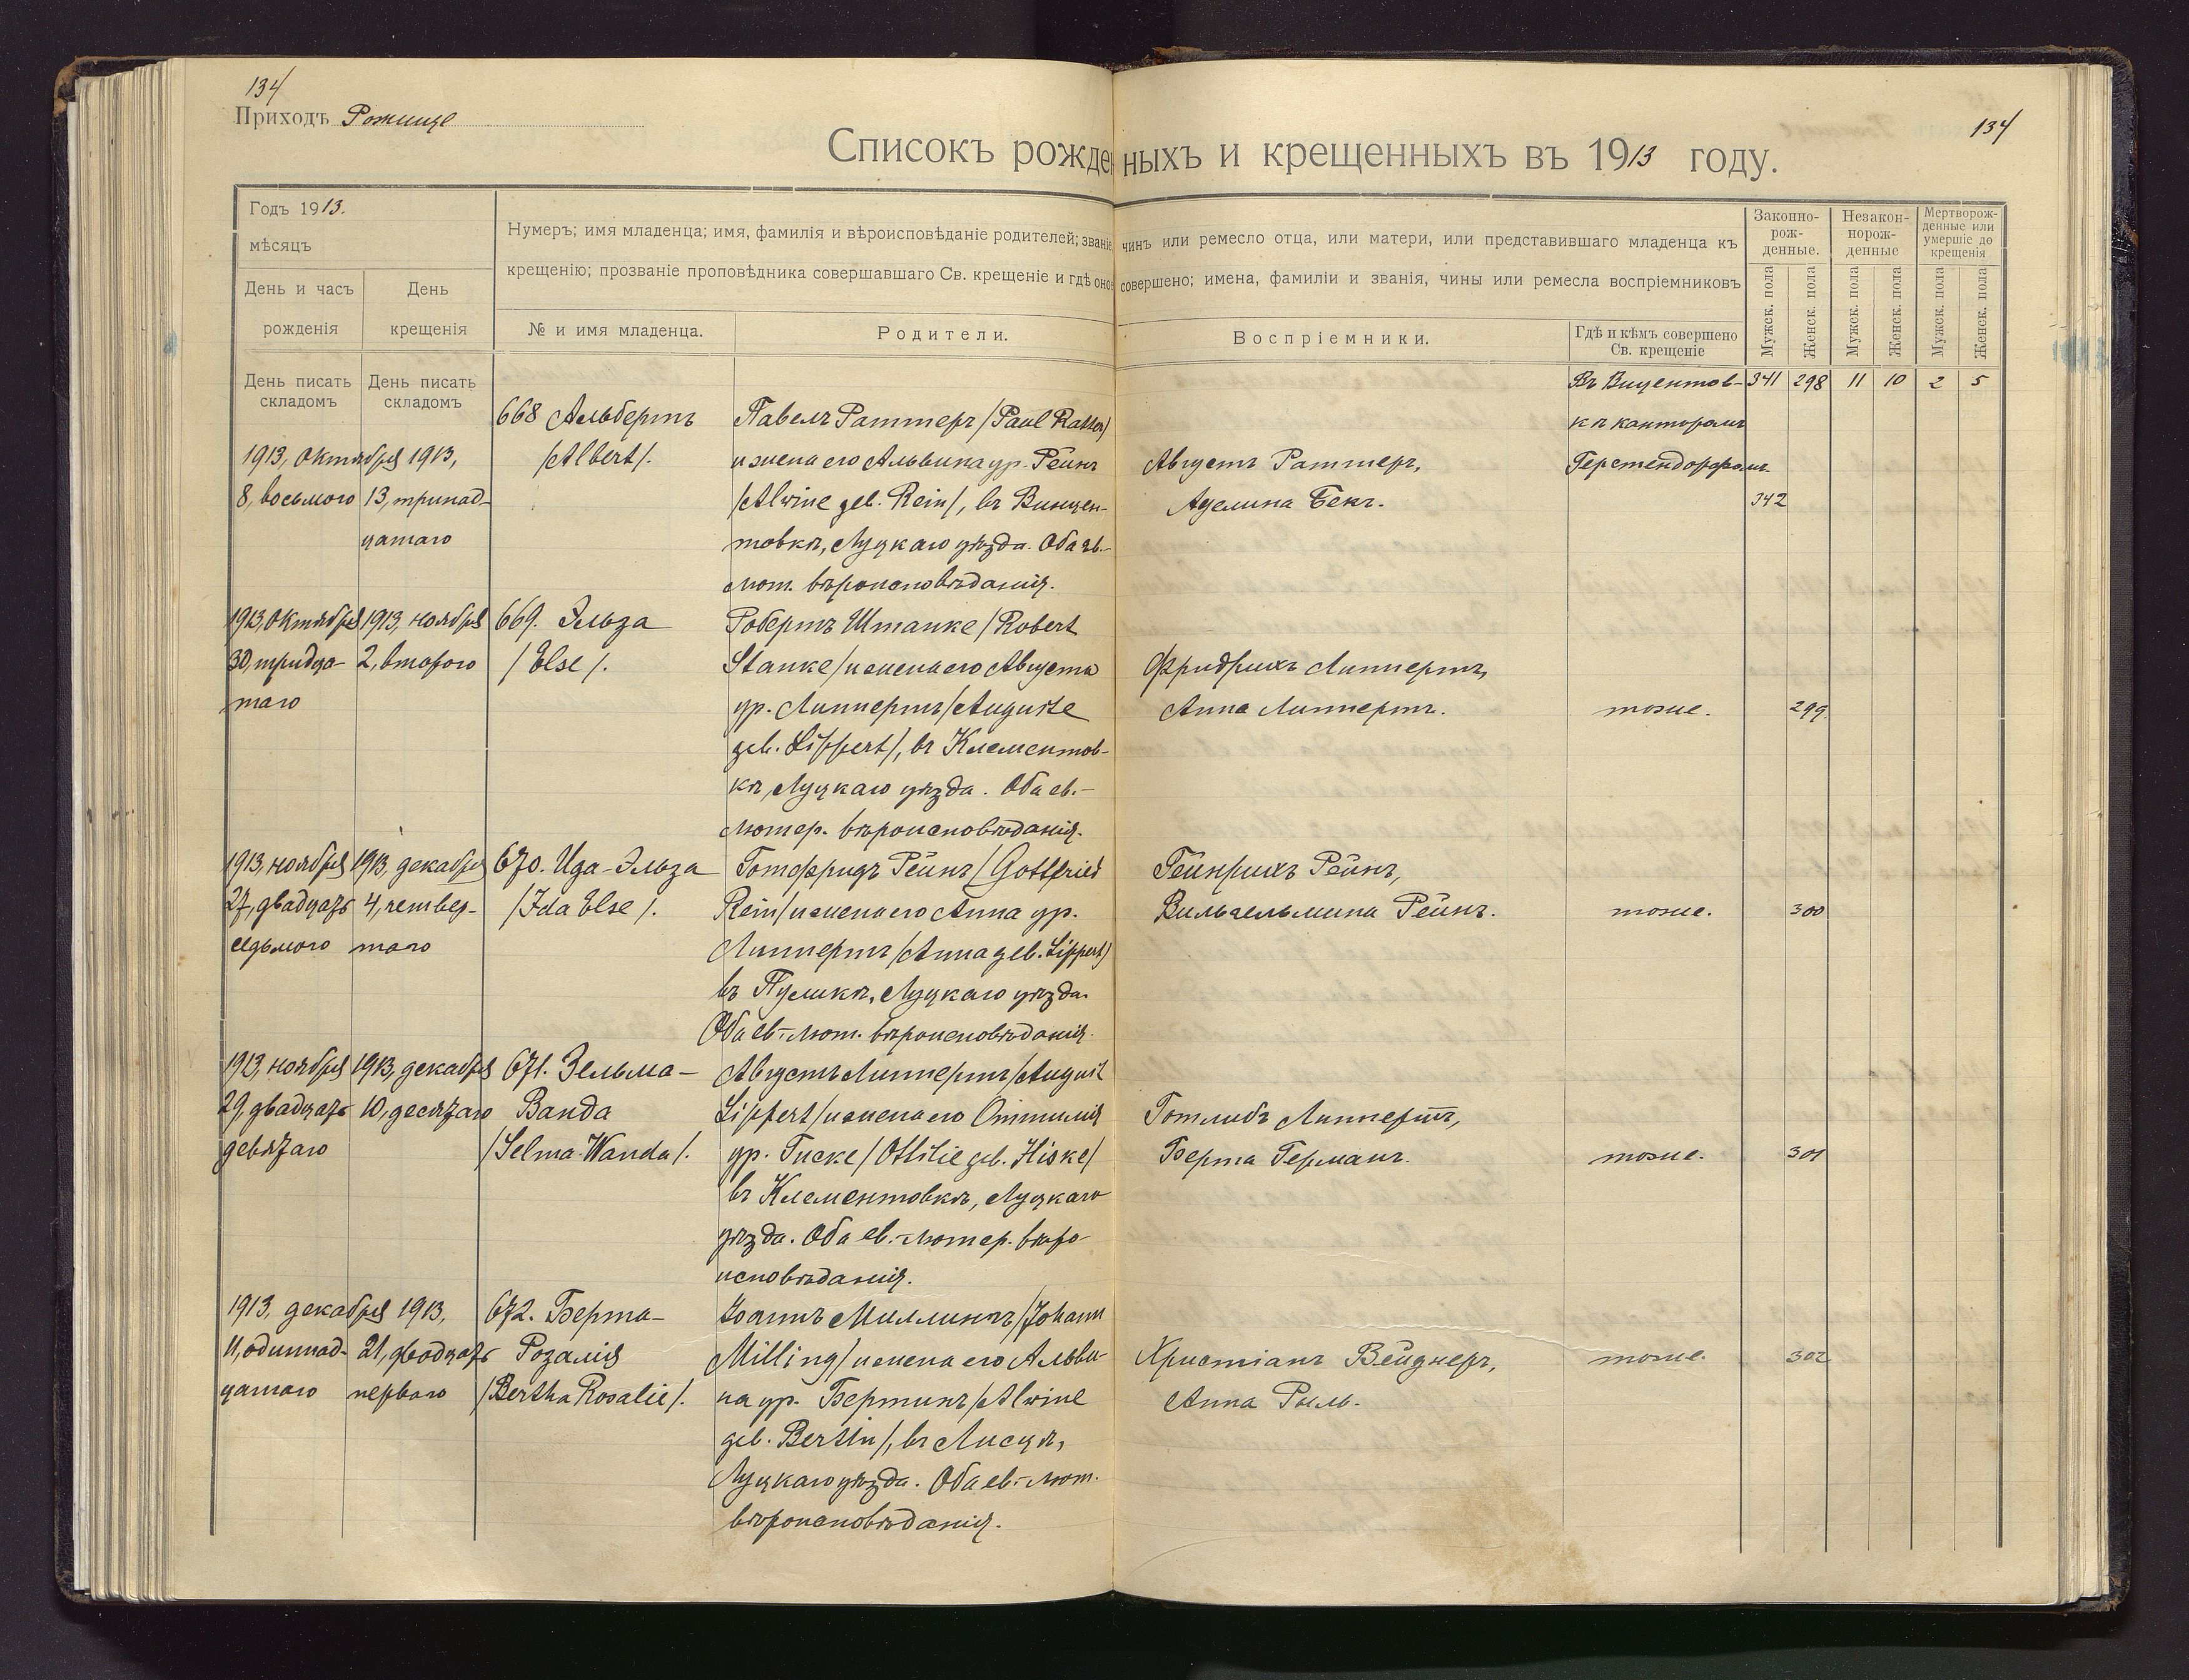 134
Приходъ Рожище
134
Списокъ рожденныхъ и крещенныхъ въ 1913 году.
Годъ 1913.
мѣсяцъ
День и часъ рожденія
День крещенія
День писать складомъ
День писать складомъ
Нумеръ; имя младенца; имя, фамилія и вѣроисповѣданіе родителей; званіе, чинъ или ремесло отца, или матери, или представившаго младенца къ
крещенію; прозваніе проповѣдника совершавшаго Св. крещеніе и гдѣ оное совершено; имена, фамиліи и званія, чины или ремесла воспріемниковъ
№ и имя младенца.
Родители.
Воспріемники.
Гдѣ и кѣмъ совершено
Св. крещеніе
Законно-
рож-
денные.
Незакон-
норож-
денные
Мертворож-
денные или
умершіе до
крещенія
Мужск. пола
Женск. пола
Мужск. пола
Женск. пола
Мужск. пола
Женск. пола
341 298 11 10 2 5
1913, октября 1913,
8, восьмого 13, тринад-
цатаго
668 Альбертъ
/Albert/.
Павелъ Раттеръ /Paul Ratter/
и жена его Альвина ур. Рейнъ
/Alwine geb. Rein/, въ Винцен-
товкѣ, Луцкаго уѣзда. Оба ев.-
лют. вѣроисповѣданія.
Августъ Раттеръ,
Аделина Бекъ.
Въ Вицентов-
кѣ канторомъ
Герстендорфомъ
342
1913, октября 1913, ноября
30, тридца- 2, второго
таго
669. Эльза
/Else/.
Робертъ Штанке /Robert
Stanke/ и жена его Августа
ур. Липпертъ /Auguste
geb. Lippert/, въ Клементов-
кѣ, Луцкаго уѣзда. Оба ев.-
лютер. вѣроисповѣданія.
Фридрихъ Липпертъ,
Анна Липпертъ.
тоже.
299.
1913, ноября 1913, декабря
27, двадцать 4, четвер-
седьмого таго
670. Ида-Эльза
/Ida Else/.
Готфридъ Рейнъ /Gottfried
Rein/ и жена его Анна ур.
Липпертъ /Anna geb. Lippert/
въ Пуликѣ, Луцкаго уѣзда.
Оба ев.-лют. вѣроисповѣданія.
Гейнрихъ Рейнъ,
Вильгельмина Рейнъ.
тоже.
300
1913, ноября 1913, декабря
29, двадцать 10, десятаго
девятаго
671. Зельма-
Ванда
/Selma-Wanda/.
Августъ Липпертъ /August
Lippert/ и жена его Оттилія
ур. Гиске /Ottilie geb. Hiske/
въ Клементовкѣ, Луцкаго
уѣзда. Оба ев.-лютер. вѣро-
исповѣданія.
Готлибъ Липпертъ,
Берта Германъ.
тоже.
301
1913, декабря 1913,
11, одиннад- 21, двадцать
цатаго перваго
672. Берта-
Розалія
/Bertha Rosalie/.
Іоаннъ Миллингъ /Johann
Milling/ и жена его Альви-
на ур. Бертинъ /Alwine
geb. Bertin/, въ Лисцѣ,
Луцкаго уѣзда. Оба ев.-лют.
вѣроисповѣданія.
Христіанъ Вейднеръ,
Анна Рыль.
тоже.
302